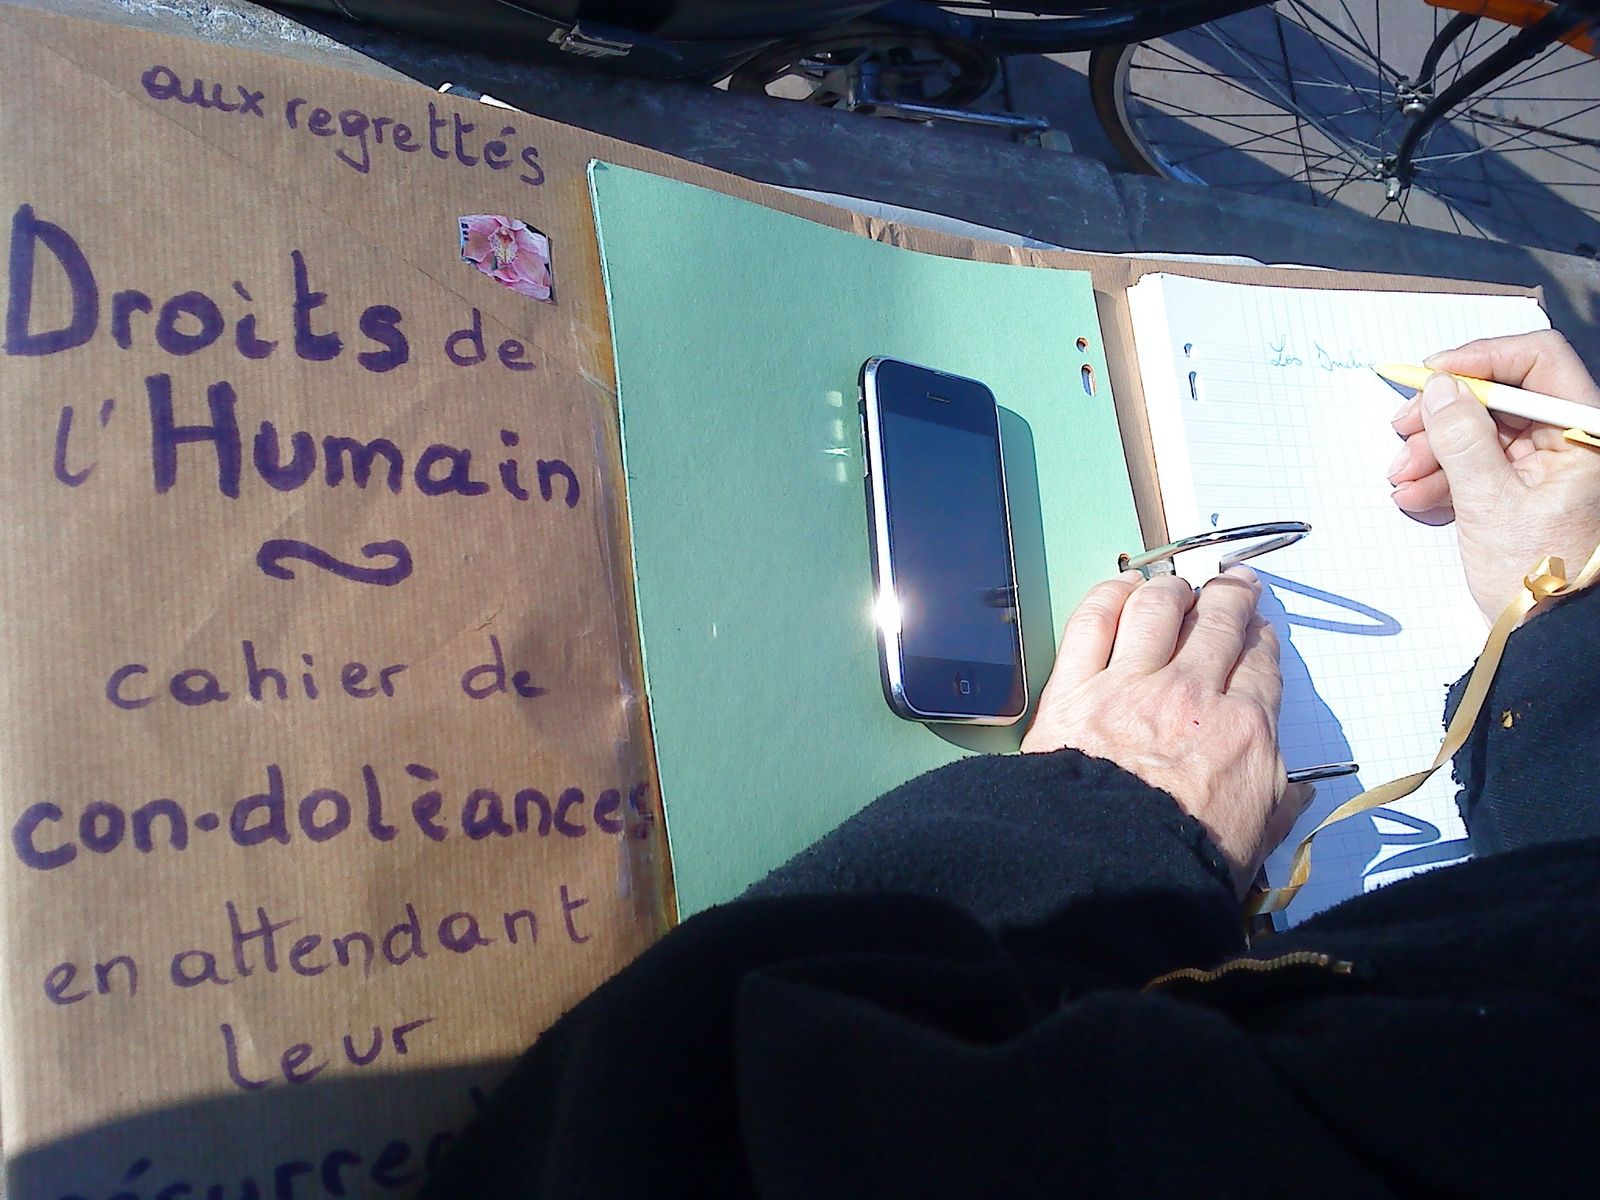 aux regrettés
Droits de
l'Humain
cahier de
con-dolèances
en attendant
leur
Les Indig